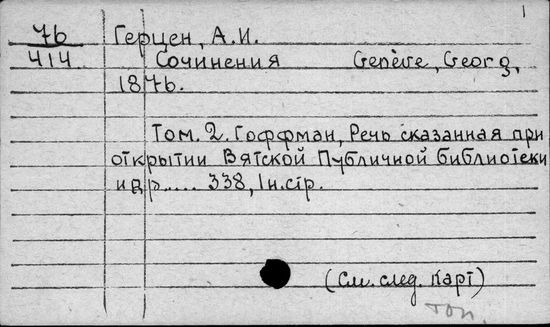 1
76 Герцен, А.И.
414 Сочинения Genève, Georg,
1876.
Том. 2. Гоффман, Речь сказанная при
открытии Вятской Публичной библиотеки
и др..... 338, 1н.стр.
(См. след. карт)
топ.